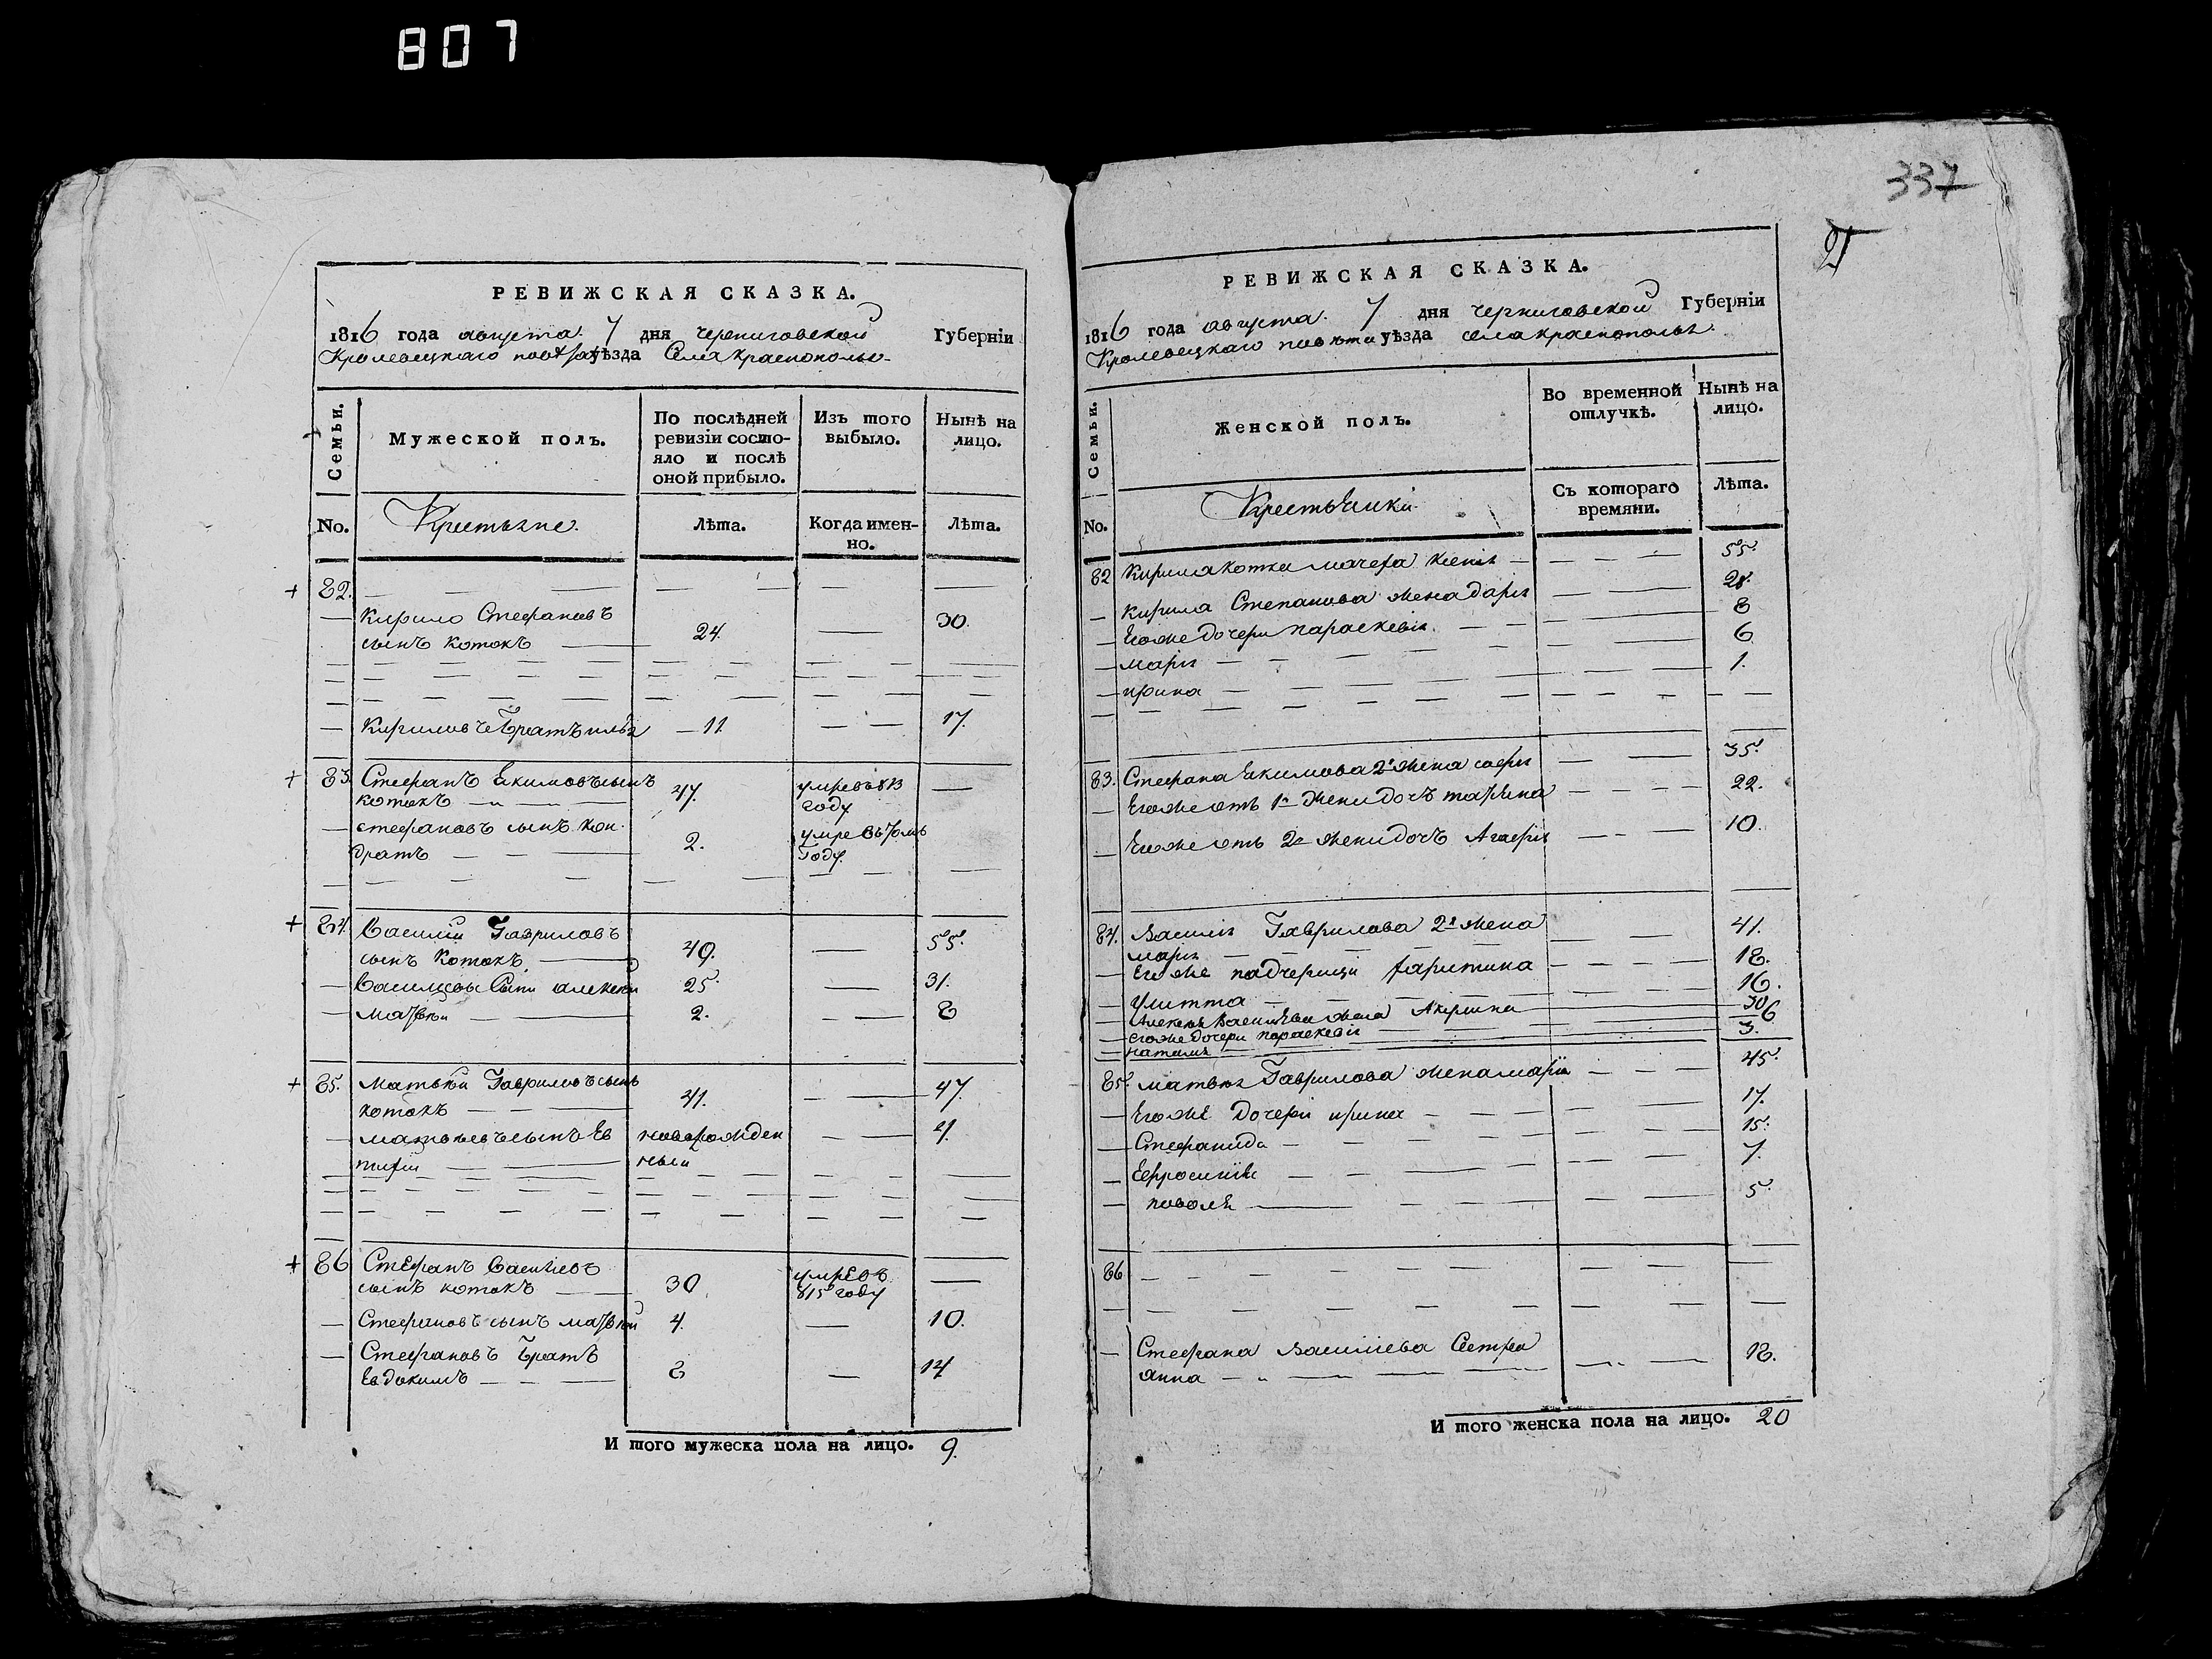 807
337
РЕВИЖСКАЯ СКАЗКА.
1816 года августа 7 дня Черниговской Губерніи
Кролевецкаго повѣта уѣзда Села Краснополья
Семьи.
Мужеской полъ.
По послѣдней ревизіи состояло и послѣ оной прибыло.
Изъ того выбыло.
Нынѣ на лицо.
No. Крестьяне. Лѣта. Когда именно. Лѣта.
82.
Кирило Стефановъ
сынъ Котокъ 24. 30.
Кириловъ братъ илья 11. 17.
83. Стефанъ Екимовъ сынъ
котокъ 47. умре въ 813 году
стефановъ сынъ кон
дратъ 2. умре году
84. Василій Гавриловъ
сынъ Котокъ 49. 55.
Васильевы Сыны алексей 25. 31.
Матвѣй 2. 8
85. Матвѣй Гавриловъ сынъ
котокъ 41. 47.
матвѣевъ сынъ Ев новорожден 4.
тифій ный
86 Стефанъ Васильевъ
сынъ котокъ 30 умре въ 815 году
Стефановъ сынъ матвѣй 4. 10.
Стефановъ братъ
Евдокимъ 8 14
И того мужеска пола на лицо. 9.
РЕВИЖСКАЯ СКАЗКА.
1816 года августа 7 дня черниговской Губерніи
Кролевецкаго повѣта уѣзда села краснополья
Семьи.
Женской полъ.
Во временной отлучкѣ.
Нынѣ на лицо.
No. Крестьянки Съ котораго времяни. Лѣта.
82 Кирила котка мачеха 55.
Кирила Степанова жена дарья 28.
Егоже дочери параскевія 8
марья 6
ирина 1.
83. Стефана Екимова 2я жена софья 35.
Егоже отъ 1й жени дочъ 22.
Егоже отъ 2й жени дочъ Агафія 10.
84. Василя Гаврилова 2я жена 41.
марья
Егоже падчерици 18.
16.
Алексея Васильева жена 30
егоже дочери параскевія 6
наталя 3.
85. матвѣя Гаврилова жена марія 45.
Егоже дочери ирина 17.
Стефанида 15.
7.
5.
86
Стефана Василіева Сестра
анна 18.
И того женска пола на лицо. 20